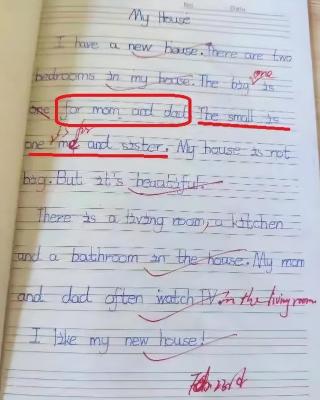 My House
I have a new house. There are two
bedrooms in my house. The big one is
one for mom and dad The small is
one is for me and sister. My house is not
big. But it's beautiful.
There is a living room, a kitchen
and a bathroom in the house. My mom
and dad often watch TV in the living room
I like my new house!